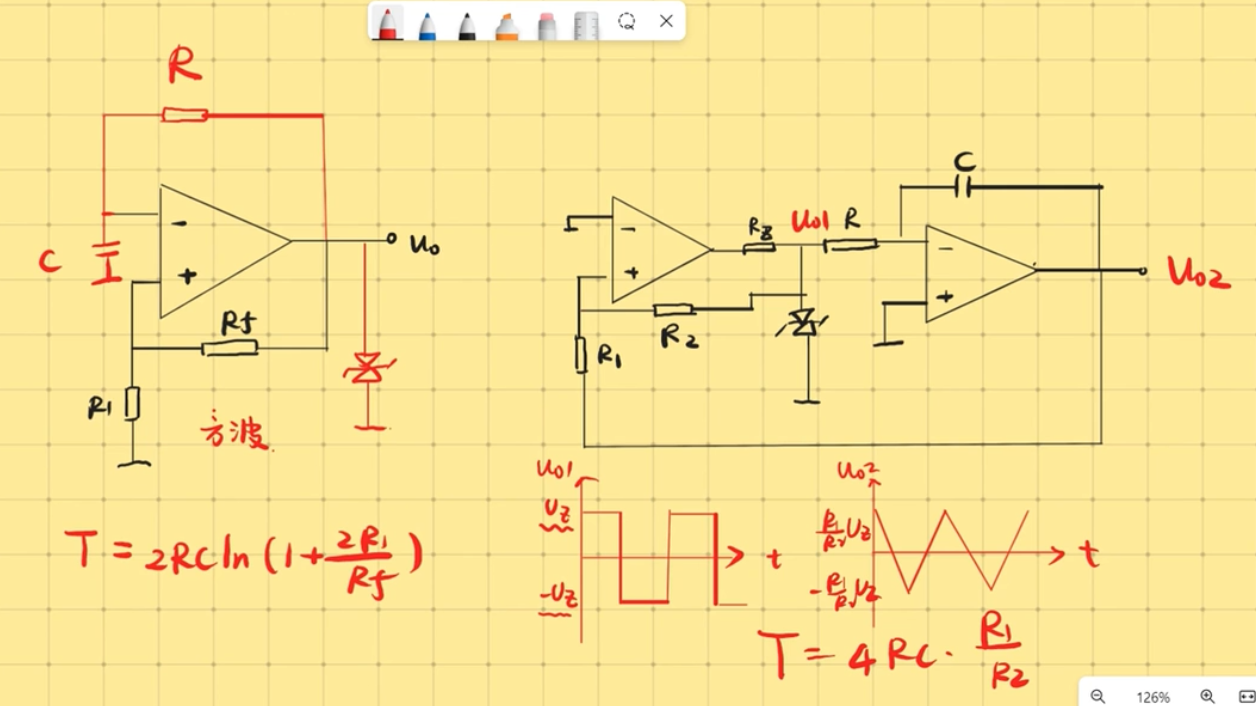 R
C
Uo
Rf
R1
方波.
T = 2RC ln (1 + 2R1/Rf)
C
Rz
Uo1
R
Uo2
R2
R1
Uo1
Uz
-Uz
t
Uo2
R1/R2 Uz
-R1/R2 Uz
t
T = 4RC · R1/R2
126%